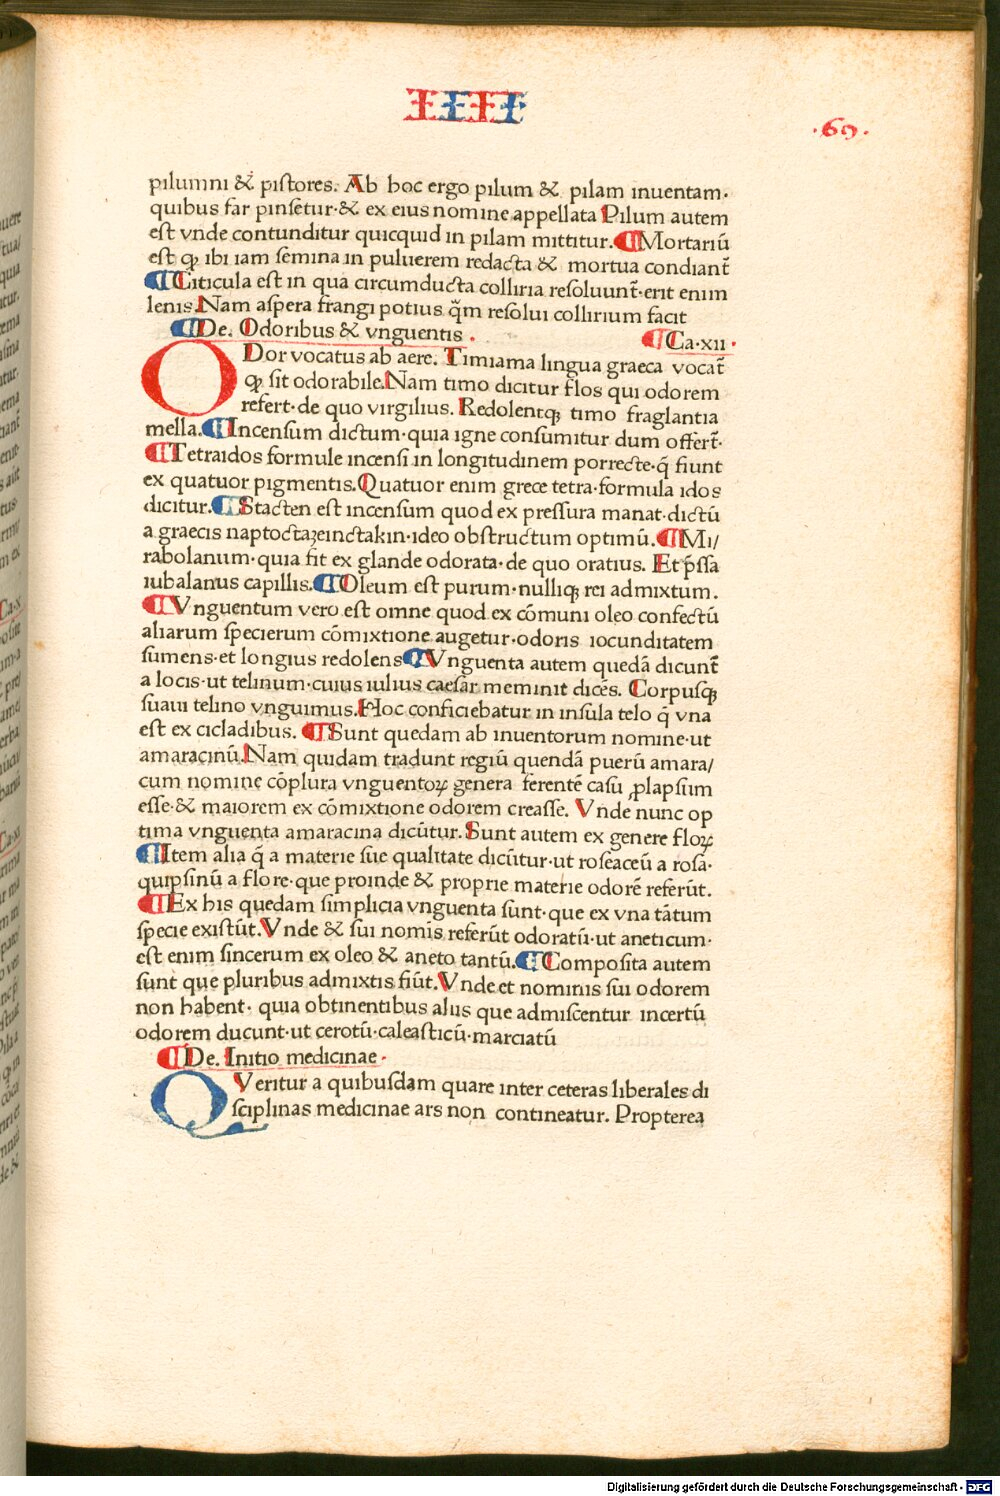 IIII
·69·
pilumni & pistores. Ab hoc ergo pilum & pilam inuentam·
quibus far pinsetur·& ex eius nomine appellata Pilum autem
est vnde contunditur quicquid in pilam mittitur. ¶Mortariū
est ꝙ ibi iam semina in puluerem redacta & mortua condiant̄
¶Citicula est in qua circumducta colliria resoluunt̄·erit enim
lenis Nam aspera frangi potius q̄m resolui collirium facit
¶De. Odoribus & vnguentis. ¶Ca·xii·
ODor vocatus ab aere. Timiama lingua graeca vocat̄
ꝙ sit odorabile. Nam timo dicitur flos qui odorem
refert·de quo virgilius. Redolentqꝫ timo fraglantia
mella. ¶Incensum dictum·quia igne consumitur dum offert̄·
¶Tetraidos formule incensi in longitudinem porrecte·q̄ fiunt
ex quatuor pigmentis. Quatuor enim grece tetra·formula idos
dicitur. ¶Stacten est incensum quod ex pressura manat·dictū
a graecis naptoctaꝫeinctakin·ideo obstructum optimū. ¶Mi/
rabolanum·quia fit ex glande odorata·de quo oratius. Et p̄ssa
iubalanus capillis. ¶Oleum est purum·nulliqꝫ rei admixtum.
¶Vnguentum vero est omne quod ex cōmuni oleo confectū
aliarum specierum cōmixtione augetur·odoris iocunditatem
sumens·et longius redolens ¶Vnguenta autem quedā dicunt̄
a locis·ut telinum·cuius iulius caesar meminit dicēs. Corpusqꝫ
suaui telino vnguimus. Hoc conficiebatur in insula telo q̄ vna
est ex cicladibus. ¶Sunt quedam ab inuentorum nomine·ut
amaracinū. Nam quidam tradunt regiū quendā puerū amara/
cum nomine cōplura vnguentoꝝ genera ferentē casu ꝓlapsum
esse·& maiorem ex cōmixtione odorem creasse. Vnde nunc op
tima vnguenta amaracina dicūtur. Sunt autem ex genere floꝝ
¶Item alia q̄ a materie sue qualitate dicūtur·ut roseaceū a rosa·
quipsinū a flore·que proinde & proprie materie odorē referūt.
¶Ex his quedam simplicia vnguenta sunt·que ex vna tātum
specie existūt. Vnde & sui nomīs referūt odoratū·ut aneticum·
est enim sincerum ex oleo & aneto tantū. ¶Composita autem
sunt que pluribus admixtis fiūt. Vnde et nominis sui odorem
non habent· quia obtinentibus aliis que admiscentur incertū
odorem ducunt·ut cerotū·caleasticū·marciatū
¶De. Initio medicinae·
QVeritur a quibusdam quare inter ceteras liberales di
sciplinas medicinae ars non contineatur. Propterea
Digitalisierung gefördert durch die Deutsche Forschungsgemeinschaft - DFG